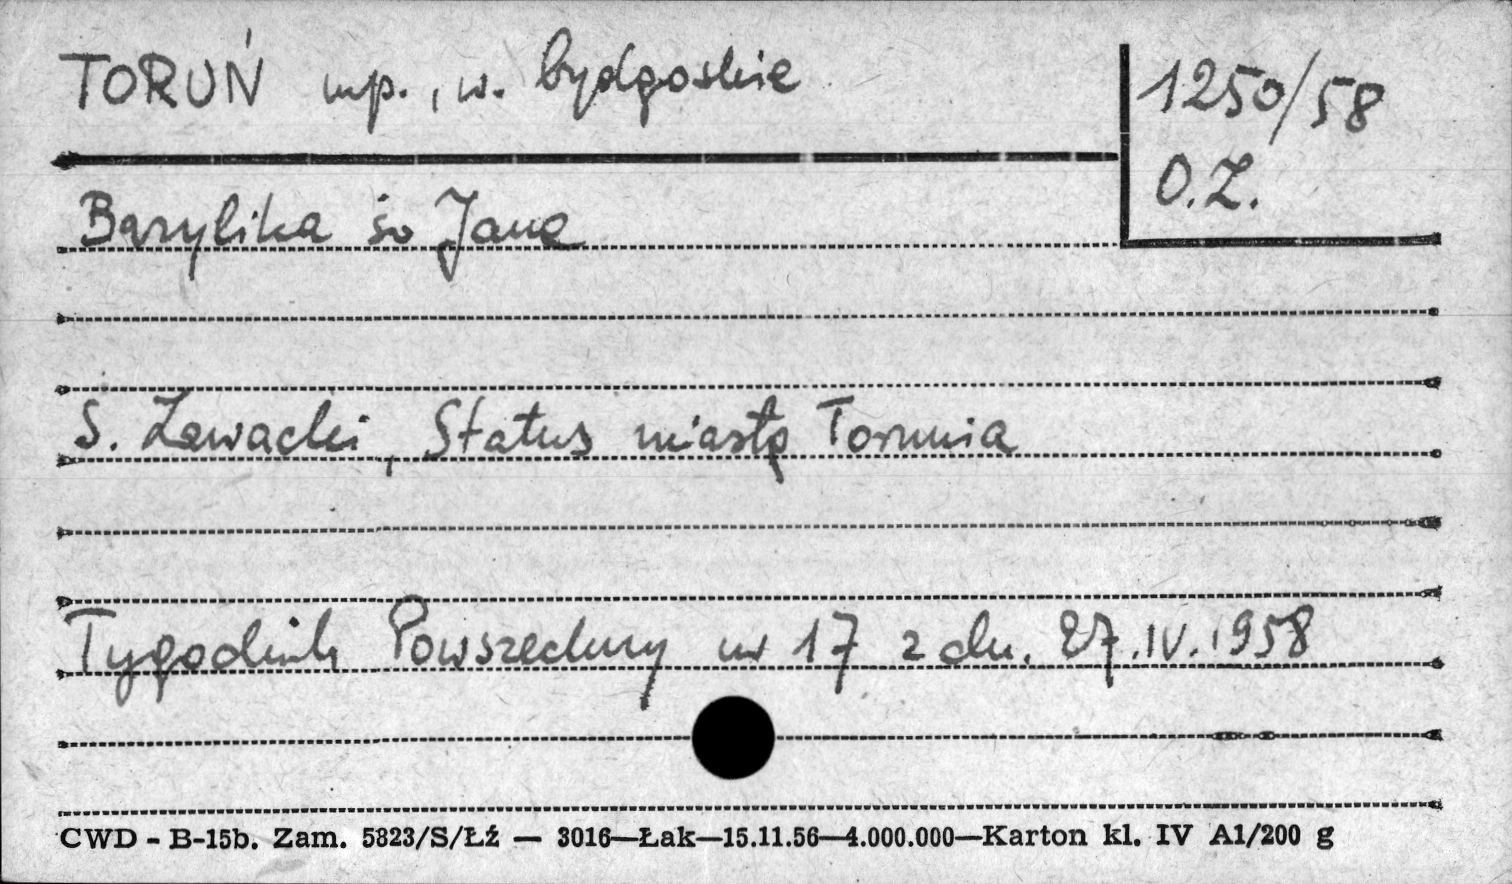 TORUŃ mp., w. bydgoskie
1250/58
O.Z.
Bazylika św Jana
S. Zawacki, Status miasta Torunia
Tygodnik Powszechny nr 17 z dn. 27.IV.1958
CWD - B-15b. Zam. 5823/S/Łź — 3016—Łak—15.11.56—4.000.000—Karton kl. IV A1/200 g